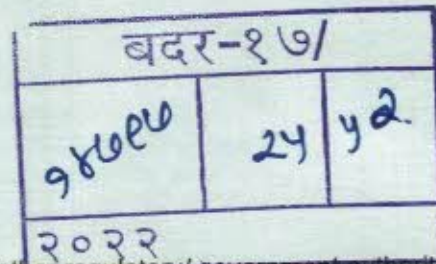 बदर-१७/
१४७९७ २५ ५२
२०२२